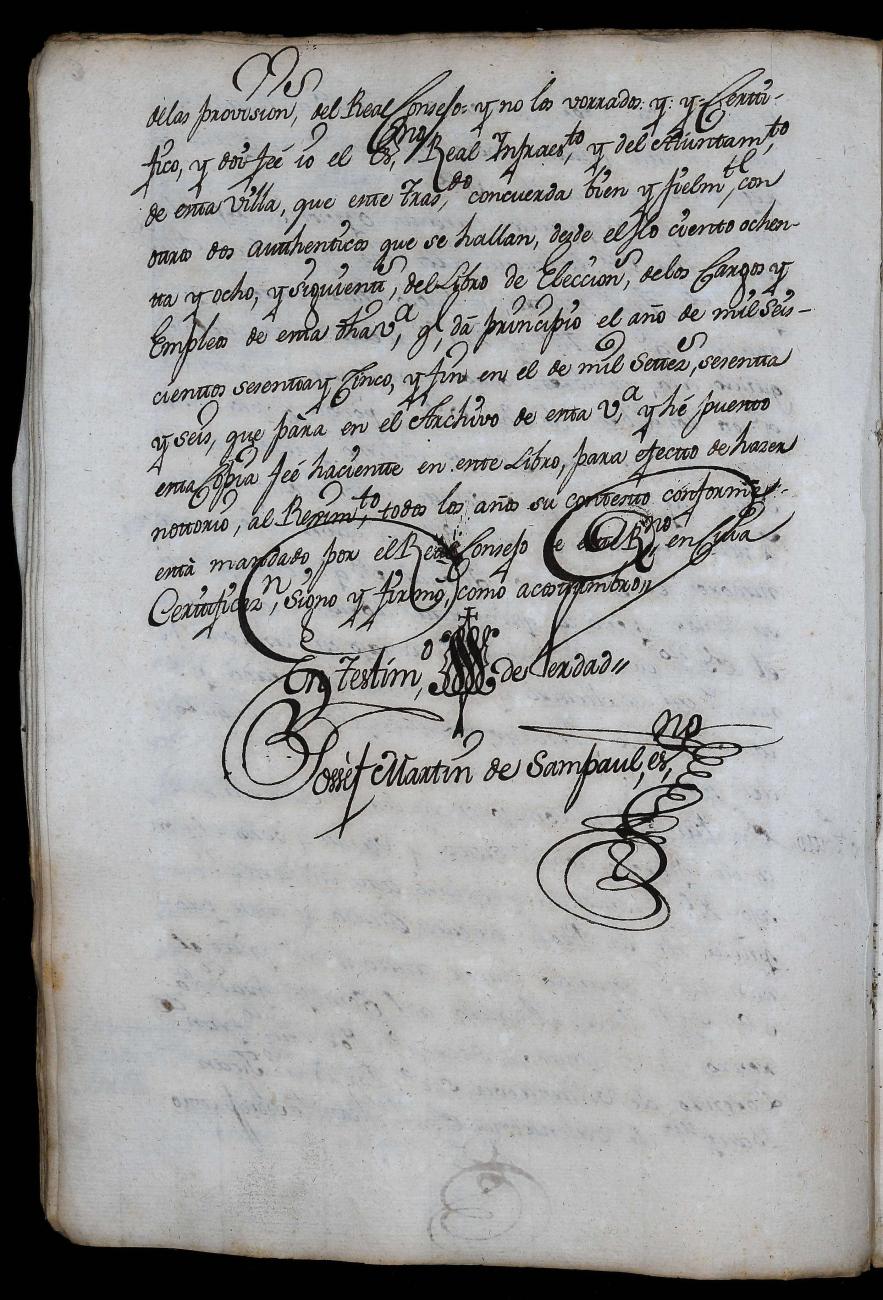 delas provision,ˢ del Real Consejo: y no los vorrados: y: y- Certti-
fico, y doi feé io el Es,ⁿᵒ Real Infraes,ᵗᵒ y del Aiuntam,ᵗᵒ
de esta Villa, que este tras,ᵈᵒ concuerda bien y fielm,ᵗᵉ con
otros dos Authenticos que se hallan, dezde el folio ciento ochen-
ta y ocho, y Siguient,ˢ del Libro de Eleccion,ˢ delos Cargos y
Empleos de esta dha V,ᵃ q, dá principio el año de mil Seis-
cientos sesenta y Cinco, y fin en el de mil Settez,ˢ sesenta
y seis, que pára en el Archivo de esta V,ᵃ y hé puesto
esta Copia feé haciente en este Libro, para efecto de hazer
nottorio, al Reximᵗᵒ, todos los años su contesto conforme
está mandado por el Real Consejo de este R,ⁿᵒ en Cuia
Certificaz,ⁿ Signo y firmo, como acostumbro„
En Testim,ᵒ de Verdad„
Joséf Martin de Sampaul, es,ⁿᵒ